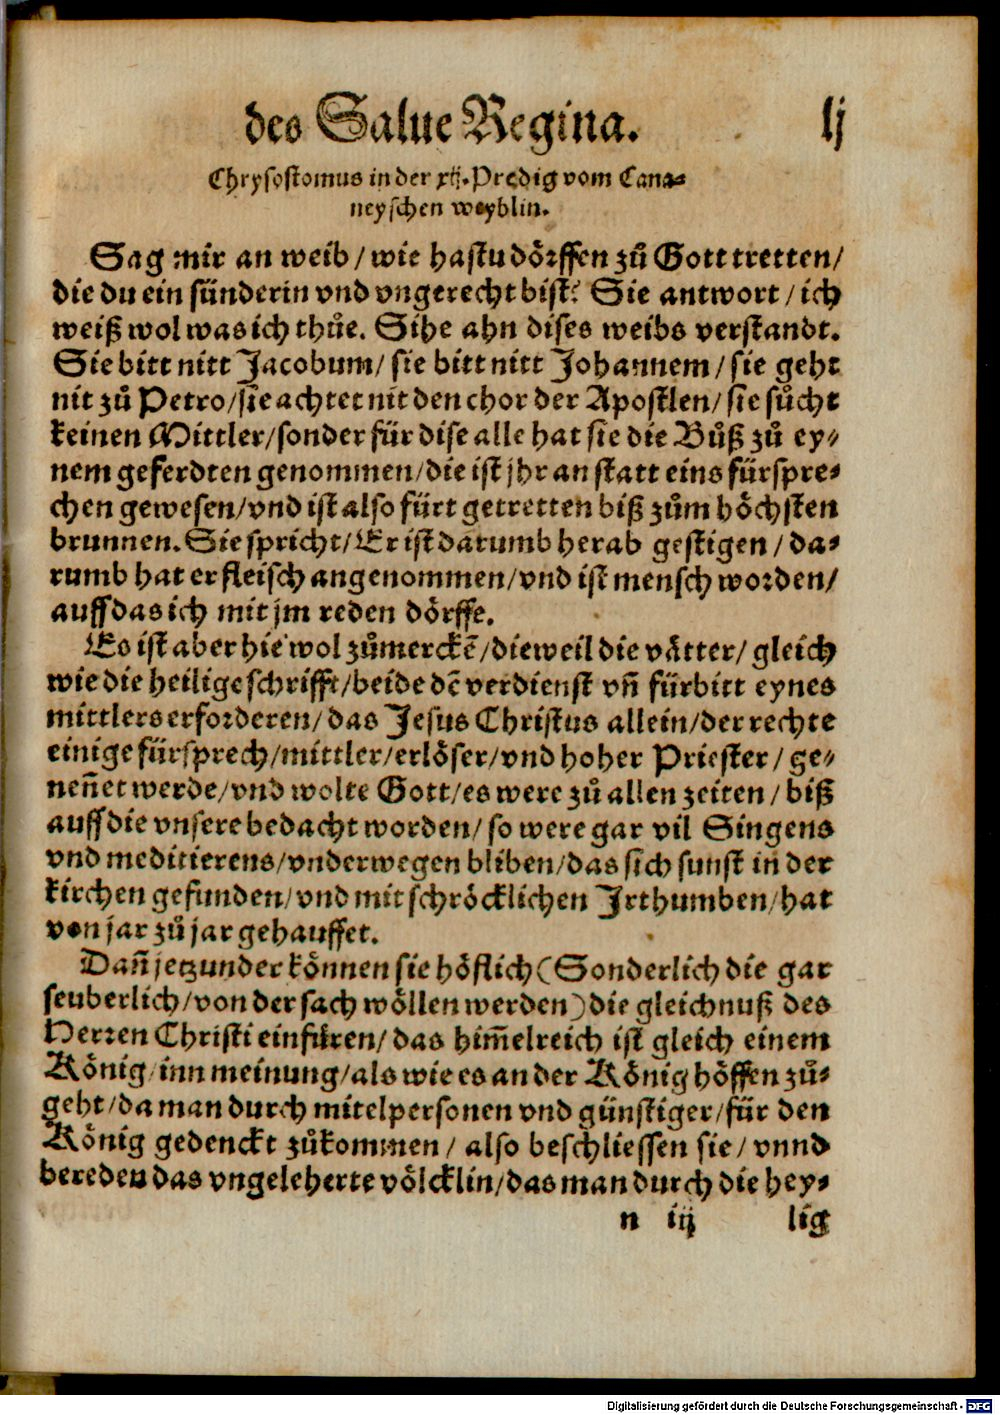 des Salue Regina. lj
Chrysostomus in der xij. Predig vom Cana⸗
neyschen weyblin.
Sag mir an weib / wie hastu dörffen zů Gott tretten /
die du ein sünderin vnd vngerecht bist? Sie antwort / ich
weiß wol was ich thůe. Sihe ahn dises weibs verstandt.
Sie bitt nitt Jacobum / sie bitt nitt Johannem / sie geht
nit zů Petro / sie achtet nit den chor der Apostlen / sie sůcht
keinen Mittler / sonder für dise alle hat sie die Bůß zů ey⸗
nem geferdten genommen / die ist jhr an statt eins fürspre⸗
chen gewesen / vnd ist also fürt getretten biß zům höchsten
brunnen. Sie spricht / Er ist darumb herab gestigen / da⸗
rumb hat er fleisch angenommen / vnd ist mensch worden /
auff das ich mit jm reden dörffe.
Es ist aber hie wol zůmerckē / dieweil die vätter / gleich
wie die heilige schrifft / beide dē verdienst vñ fürbitt eynes
mittlers erforderen / das Jesus Christus allein / der rechte
einige fürsprech / mittler / erlöser / vnd hoher Priester / ge⸗
neñet werde / vnd wolte Gott / es were zů allen zeiten / biß
auff die vnsere bedacht worden / so were gar vil Singens
vnd meditierens / vnderwegen bliben / das sich sunst in der
kirchen gefunden / vnd mit schröcklichen Irthumben / hat
von jar zů jar gehauffet.
Dañ jetzunder können sie höflich (Sonderlich die gar
seuberlich / von der sach wöllen werden) die gleichnuß des
Herren Christi einfüren / das him̄elreich ist gleich einem
König / inn meinung / als wie es an der König höffen zů⸗
geht / da man durch mitelpersonen vnd günstiger / für den
König gedenckt zůkommen / also beschliessen sie / vnnd
bereden das vngeleherte völcklin / das man durch die hey⸗
n iij lig
Digitalisierung gefördert durch die Deutsche Forschungsgemeinschaft - DFG